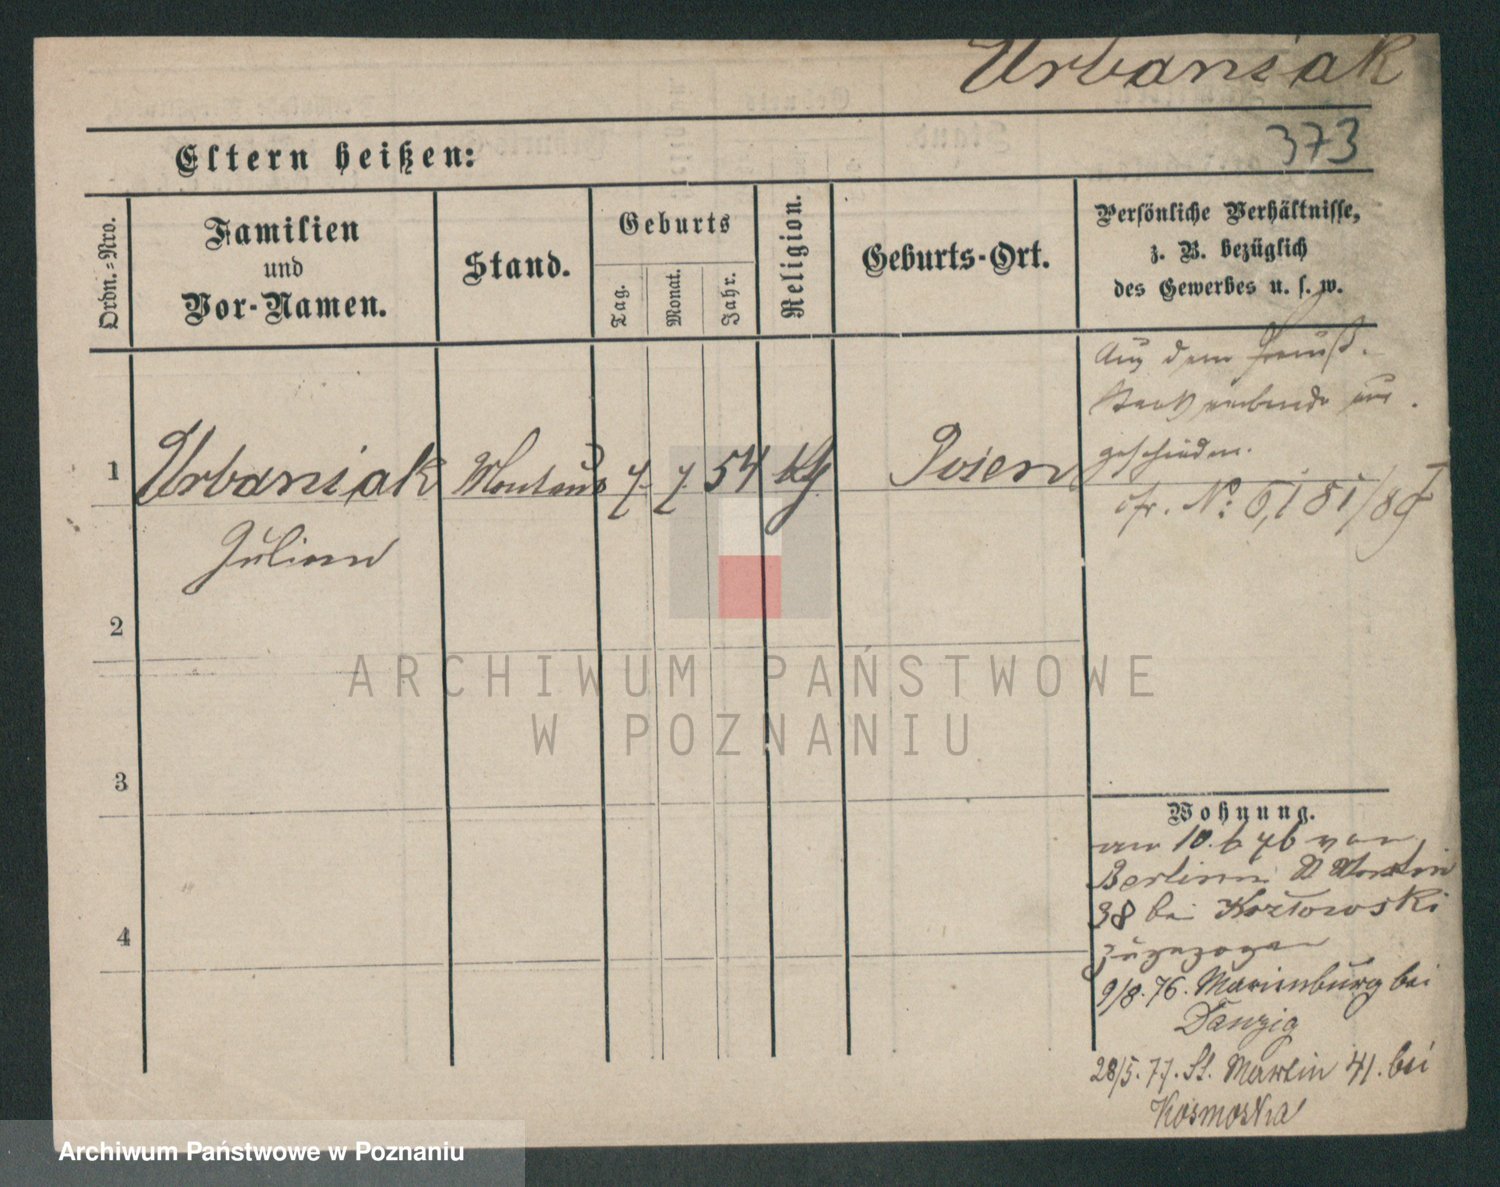 Urbaniak
373
Eltern heißen:
Ordn.=Nro.
Familien
und
Vor-Namen.
Stand.
Geburts
Tag.
Monat.
Jahr.
Religion.
Geburts-Ort.
Persönliche Verhältnisse,
z. B. bezüglich
des Gewerbes u. s. w.
Aus dem Preuß.
Staatsverbande aus
geschieden.
cfr. No:
1 Urbaniak 7 7 54 Posen
Julian
2
3
4
Wohnung.
am 10. 6 76 von
Berlin St Martin
38 bei Kozlowski
zugezogen
9/8. 76. Marienburg bei
Danzig
28/5. 77. St. Martin 41. bei
Kosmoska
ARCHIWUM PAŃSTWOWE
W POZNANIU
Archiwum Państwowe w Poznaniu